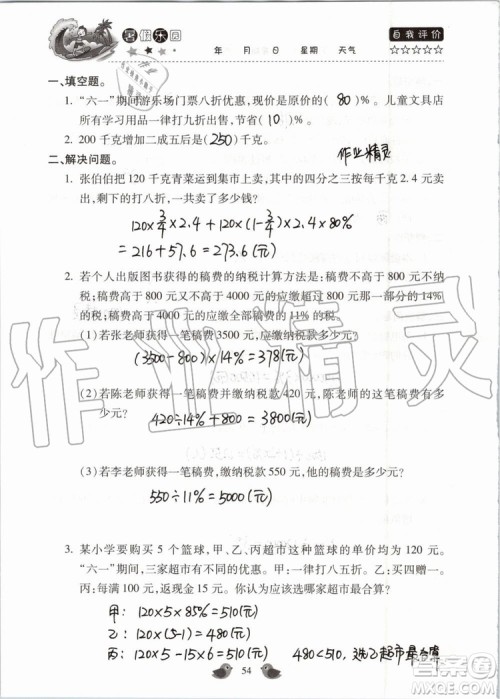 暑假乐园
年 月 日 星期 天气
自我评价
☆☆☆☆☆
一、填空题。
1. “六一”期间游乐场门票八折优惠，现价是原价的（ 80 ）%。儿童文具店
所有学习用品一律打九折出售，节省（ 10 ）%。
2. 200 千克增加二成五后是（ 250 ）千克。
作业精灵
二、解决问题。
1. 张伯伯把 120 千克青菜运到集市上卖，其中的四分之三按每千克 2.4 元卖
出，剩下的打八折，一共卖了多少钱？
120×3/4×2.4+120×(1-3/4)×2.4×80%
=216+57.6=273.6(元)
2. 若个人出版图书获得的稿费的纳税计算方法是：稿费不高于 800 元不纳
税；稿费高于 800 元又不高于 4000 元的应缴超过 800 元的那一部分的 14%
的税；稿费高于 4000 元的应缴全部稿费的 11% 的税。
(1) 若张老师获得一笔稿费 3500 元，应缴纳税款多少元？
(3500-800)×14%=378(元)
(2) 若陈老师获得一笔稿费并缴纳税款 420 元，陈老师的这笔稿费有多
少元？
420÷14%+800=3800(元)
(3) 若李老师获得一笔稿费，缴纳税款 550 元，他的稿费是多少元？
550÷11%=5000(元)
3. 某小学要购买 5 个篮球，甲、乙、丙超市这种篮球的单价均为 120 元。
“六一”期间，三家超市均有优惠。甲：一律打八五折。乙：买四赠一。丙：
每满 100 元，返现金 15 元。你认为应该选哪家超市最合算？
甲：120×5×85%=510(元)
乙：120×(5-1)=480(元)
丙：120×5-15×6=510(元) 480<510，选乙超市最合算
54
作业精灵